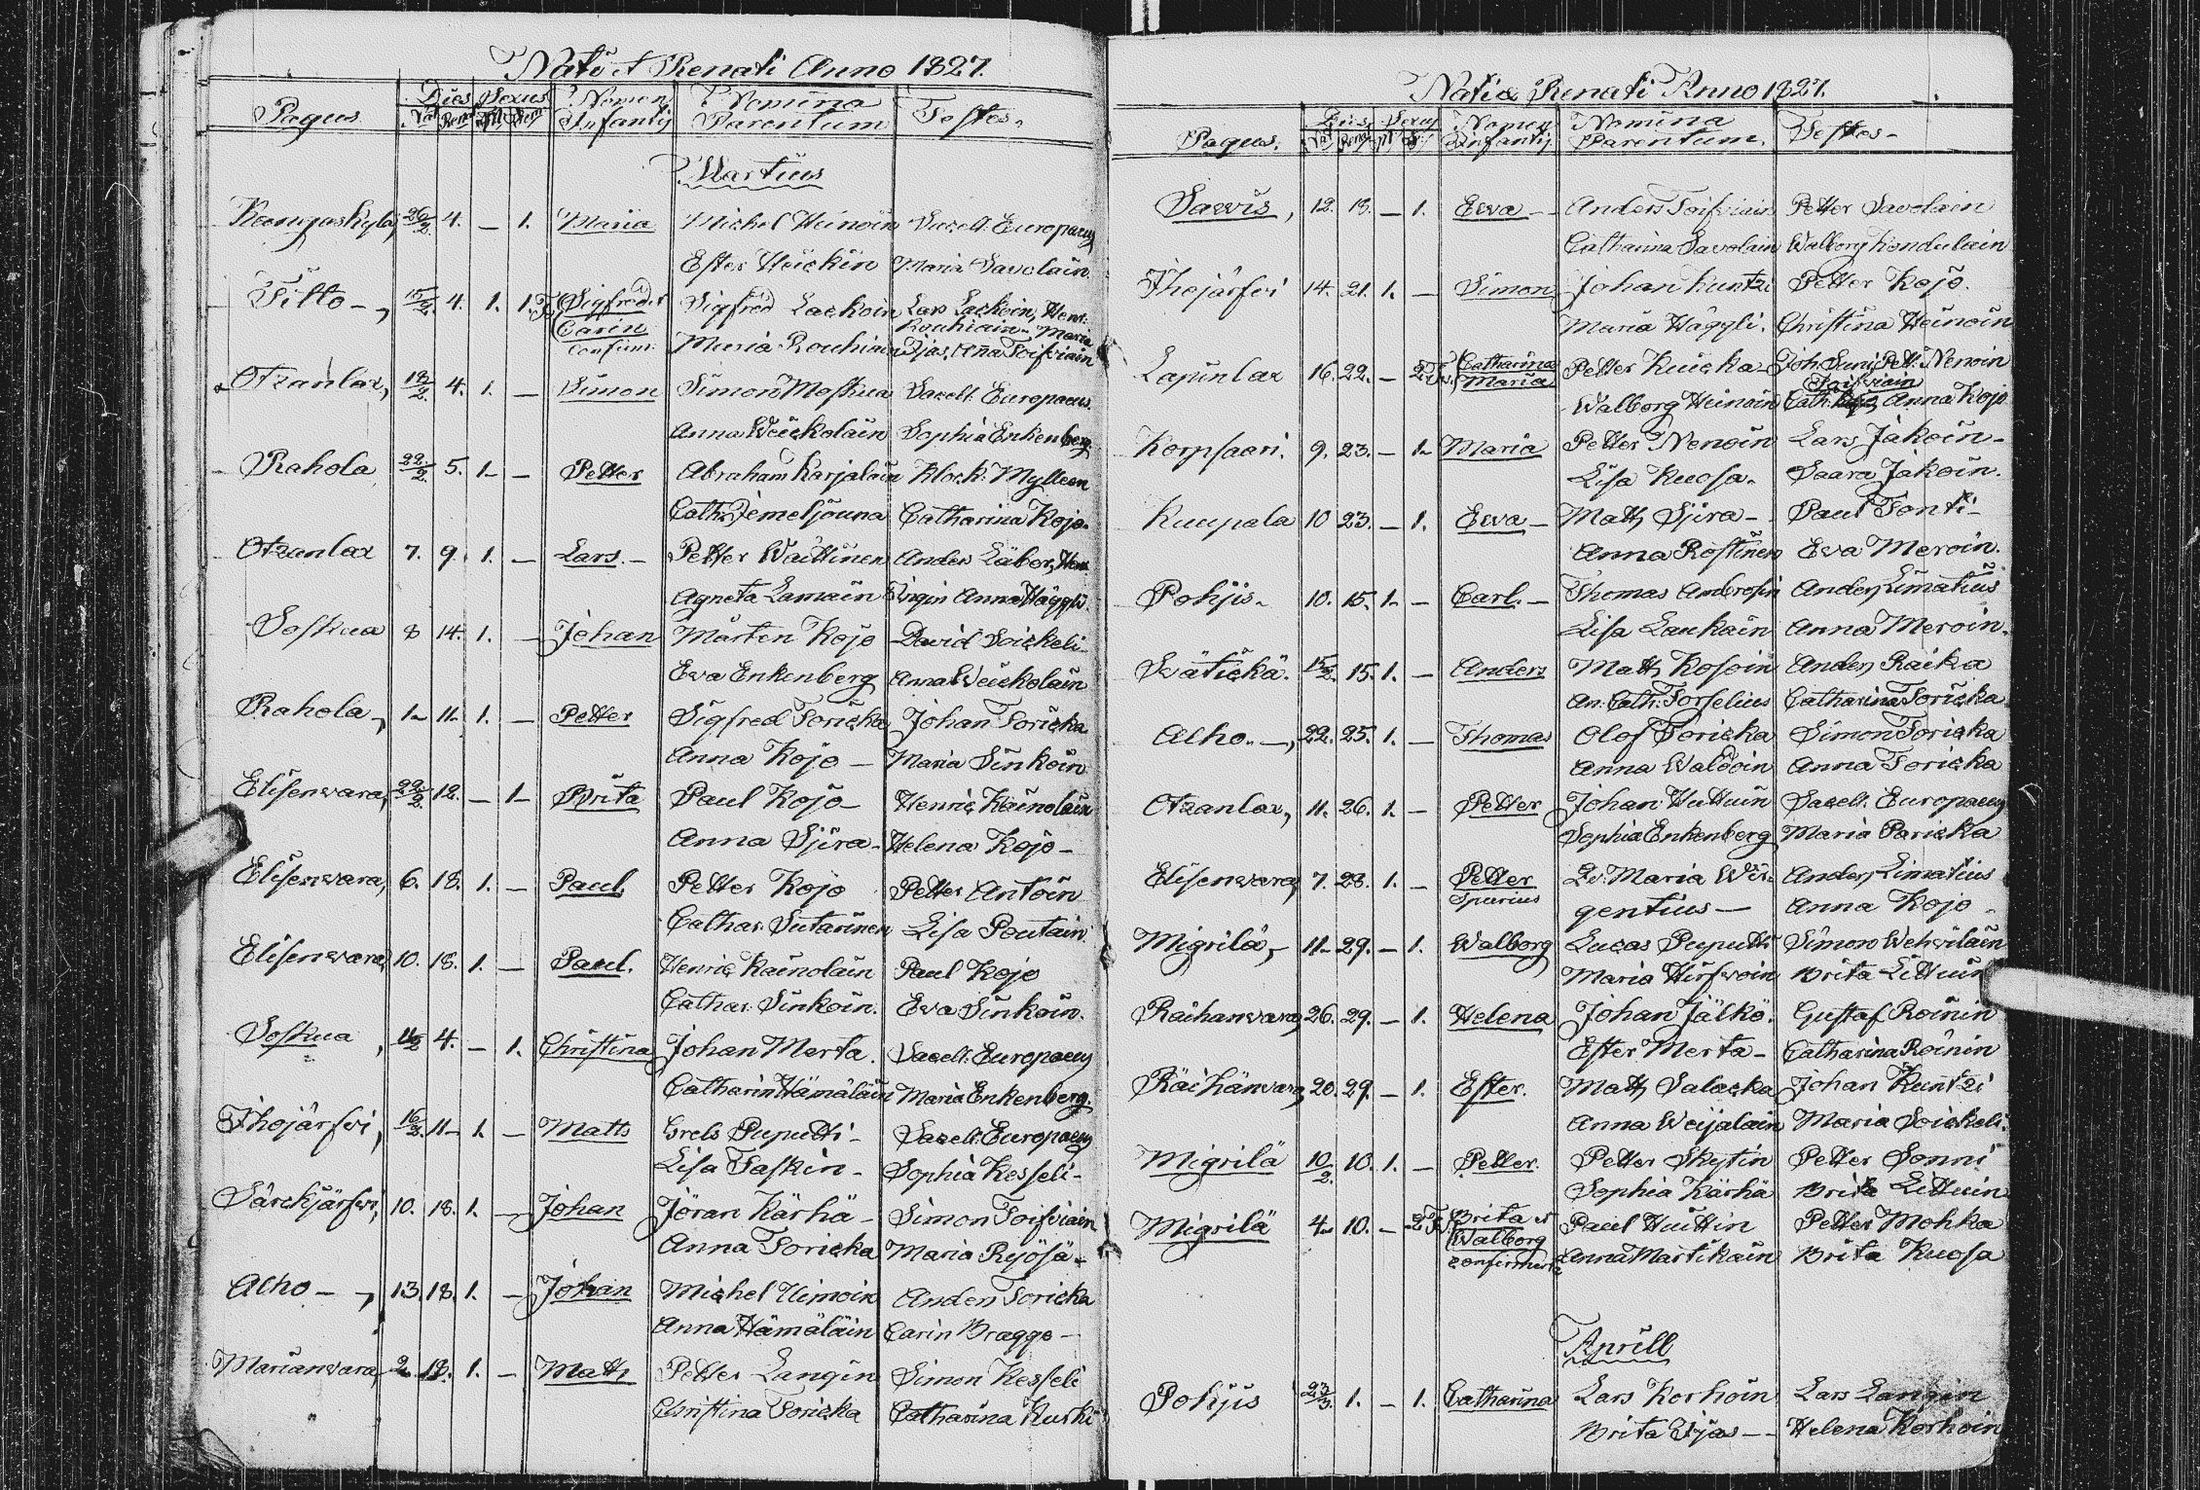 Nati et Renati Anno 1827.
Pagus Dies Sexus Nomen Nomina Testes
Nat Ren M Fem Infantis Parentum
Martius
Kangaskylä, 26/2 4. — 1. Maria Michel Heinoin Sacell: Europaeus
Ester Heickin Maria Savolain
Tiltto —, 15/2 4. 1. 1. Sigfred et Sigfred Lackoin Lars Lackoin, Henr:
Carin Rouhiain Maria
Maria Rouhiain Ijas, Anna Toifviain
Otzanlax, 18/2 4. 1. — Simon Simon Moskua Sacell: Europaeus
Anna Weickolain Sophia Enkenberg
Rahola 22/2 5. 1. — Petter Abraham Karjalain Klock: Mylleen
Cath: Jemeljouna Catharina Kojo.
Otzanlax 7. 9. 1. — Lars. — Petter Waittinen Anders
Agneta Lamain Anna Häggli
Soskua 8 14. 1. — Johan Mårten Kojo David Soickeli
Eva Enkenberg Anna Weickolain
Rahola, 1. 11. 1. — Petter Sigfred Toricka Johan Toricka
Anna Kojo — Maria Sinkoin
Elisenwara, 22/2 12. — 1. Brita Paul Kojo Henric Kainolain
Anna Sjira — Helena Kojo —
Elisenwara, 6. 18. 1. — Paul Petter Kojo Petter Antoin
Cathar. Sutarinen Lisa Poutain
Elisenwara, 10. 18. 1. — Paul. Henric Kainolain Paul Kojo
Cathar. Sinkoin. Eva Sinkoin.
Soskua, 4. — 1. Christina Johan Merta. Sacell: Europaeus
Catharin Hämäläin Maria Enkenberg.
Ihojärfvi, 16/2 11. 1. — Matts Grels Puputti — Sacell: Europaeus
Lisa Taskin — Sophia Kesseli —
Särckjärfvi, 10. 18. 1. — Johan Jöran Kärhä — Simon Toifviain
Anna Toricka Maria Repösä
Alho —, 13. 18. 1. — Johan Michel Heimoin Anders Toricka
Anna Hämäläin Carin Bragge —
Marianwara, 2. 18. 1. — Matts Petter Langin Simon Kesseli
Christina Toricka Catharina Kurki
Nati & Renati Anno 1827.
Pagus. Dies Sexus Nomen Nomina Testes —
Nat Ren M Infantis Parentum.
Sawis, 12. 18. — 1. Ewa — Anders Toifviain Petter Savolain
Catharina Savolain Walborg Kondulain
Ihojärfvi 14. 21. 1. — Simon Johan Kuntzi Petter Kojo.
Maria Häggli. Christina Heinoin
Lapinlax 16. 22. — 2. Catharina Petter Kuicka Joh. Suni, Pett. Nenoin
Maria Toifviain
Walborg Heinoin Cath: Anna Kojo
Korpsaari. 9. 23. — 1. Maria Petter Nenoin Lars Jakoin —
Lisa Kuosa. Saara Jakoin.
Kuupala 10 23. — 1. Ewa — Matts Sjira — Paul Tonti —
Anna Rostinen Eva Meroin.
Pohjis. 10. 15. 1. — Carl. — Thomas Ambrosin Anders Limatius
Lisa Laukain Anna Meroin.
Swätickä. 15/2. 15. 1. — Anders Matts Kosoin Anders Raika
An: Cath: Torselius Catharina Toricka
Alho. —, 22. 25. 1. — Thomas Olof Toricka Simon Toricka
Anna Waldoin Anna Toricka
Otzanlax, 11. 26. 1. — Petter Johan Huttuin Sacell: Europaeus
Sophia Enkenberg Maria Paricka
Elisenwara, 7. 28. 1. — Petter Maria Wir- Anders Limatius
Spurius gentius — Anna Kojo
Migrilä, 11. 29. — 1. Walborg Lucas Puputti Simon Wehviläin
Maria Hirfvoin Brita Littuin
Raihanwara, 26. 29. — 1. Helena Johan Jälkö. Gustaf Roinin
Ester Merta — Catharina Roinin
Räihänwara, 20. 29. — 1. Ester. Matts Salacka Johan Kuntzi
Anna Weijalain Maria Soickeli.
Migrilä 10/2 10. 1. — Petter. Petter Skytin Petter Sonni
Sophia Kärhä Brita Littuin
Migrilä 4. 10. — 2. Brita et Paul Huttin Petter Mohka
Walborg
Anna Martikain Brita Kuosa
Aprill
Pohjis 23/3 1. — 1. Catharina Lars Korhoin Lars Langin
Brita Ijas — Helena Korhoin